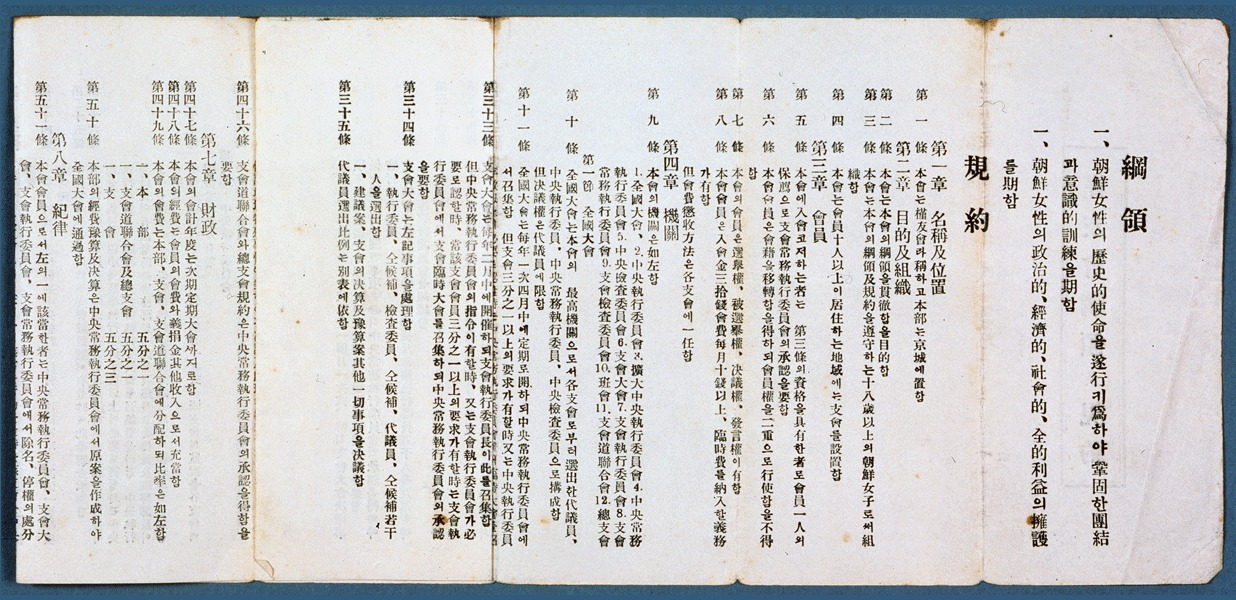 綱領
一、朝鮮女性의歷史的使命을遂行기爲하야鞏固한團結
과意識的訓練을期함
一、朝鮮女性의政治的、經濟的、社會的、全的利益의擁護
를期함
規約
第一章 名稱及位置
第一條 本會는槿友會라稱하고本部는京城에置함
第二章 目的及組織
第二條 本會는本會의綱領을貫徹함을目的함
第三條 本會는本會의綱領及規約을遵守하는十八歲以上의朝鮮女子로써組
織함
第四條 本會는會員十人以上이居住하는地域에는支會를設置함
第三章 會員
第五條 本會에入會코저하는者는 第三條의資格을具有한者로會員一人의
保薦으로支會常務執行委員會의承認을要함
第六條 本會會員은會籍을移轉함을得하되會員權을二重으로行使함을不得
함
第七條 本會의會員은選擧權、被選擧權、決議權、發言權이有함
第八條 本會會員은入會金三拾錢會費每月十錢以上、臨時費를納入할義務
가有함
但會費懲收方法은各支會에一任함
第四章 機關
第九條 本會의機關은如左함
1.全國大會、2.中央執行委員會3.擴大中央執行委員會4.中央常務
執行委員會5.中央檢查委員會6.支會大會7.支會執行委員會8.支會
常務執行委員會9.支會檢查委員會10.班會11.支會道聯合會12.總支會
第一節 全國大會
第十條 全國大會는本會의 最高機關으로서各支會로부터選出한代議員、
中央執行委員、中央常務執行委員、中央檢查委員으로構成함
但決議權은代議員에限함
第十一條 全國大會는每年一次四月中에定期로開하되中央常務執行委員會에
서召集함 但支會三分之一以上의要求가有할時又는中央執行委員
第三十三條 支會大會는每年二月中에開催하되支會執行委員長이此를召集함
但中央執行委員會의指令이有한時、又는支會執行委員會가必
要로認할時、當該支會會員三分之一以上의要求가有할時는支會執
行委員會에서支會臨時大會를召集하되中央常務執行委員會의承認
을要함
第三十四條 支會大會는左記事項을處理함
一、執行委員、仝候補、檢查委員、仝候補、代議員、仝候補若干
人을選出함
一、建議案、支會의決算及豫算案其他一切事項을決議함
第三十五條 代議員選出比例는別表에依함
第四十六條 支會道聯合會와總支會規約은中央常務執行委員會의承認을得함을
要함
第七章 財政
第四十七條 本會의會計年度는次期定期大會까지로함
第四十八條 本會의經費는會員의會費와義捐金其他收入으로서充當함
第四十九條 本會의會費는本部、支會、支會道聯合會에分配하되比率은如左함
一、本部 五分之一
一、支會道聯合會及總支會 五分之一
一、支會 五分之三
第五十條 本部의經費豫算及決算은中央常務執行委員會에서原案을作成하야
全國大會에通過함
第八章 紀律
第五十一條 本會會員으로서左의一에該當한者는中央常務執行委員會、支會大
會、支會執行委員會、支會常務執行委員會에서除名、停權의處分